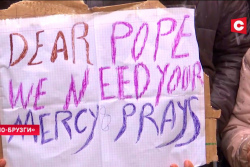 DEAR POPE
WE NEED YOUR
MERCY & PRAYS
О-БРУЗГИ»
C